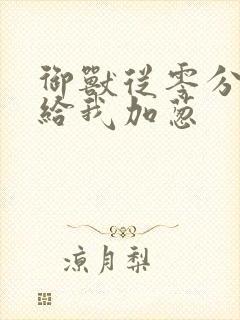 御獸從零分
給我加蔥
涼月梨